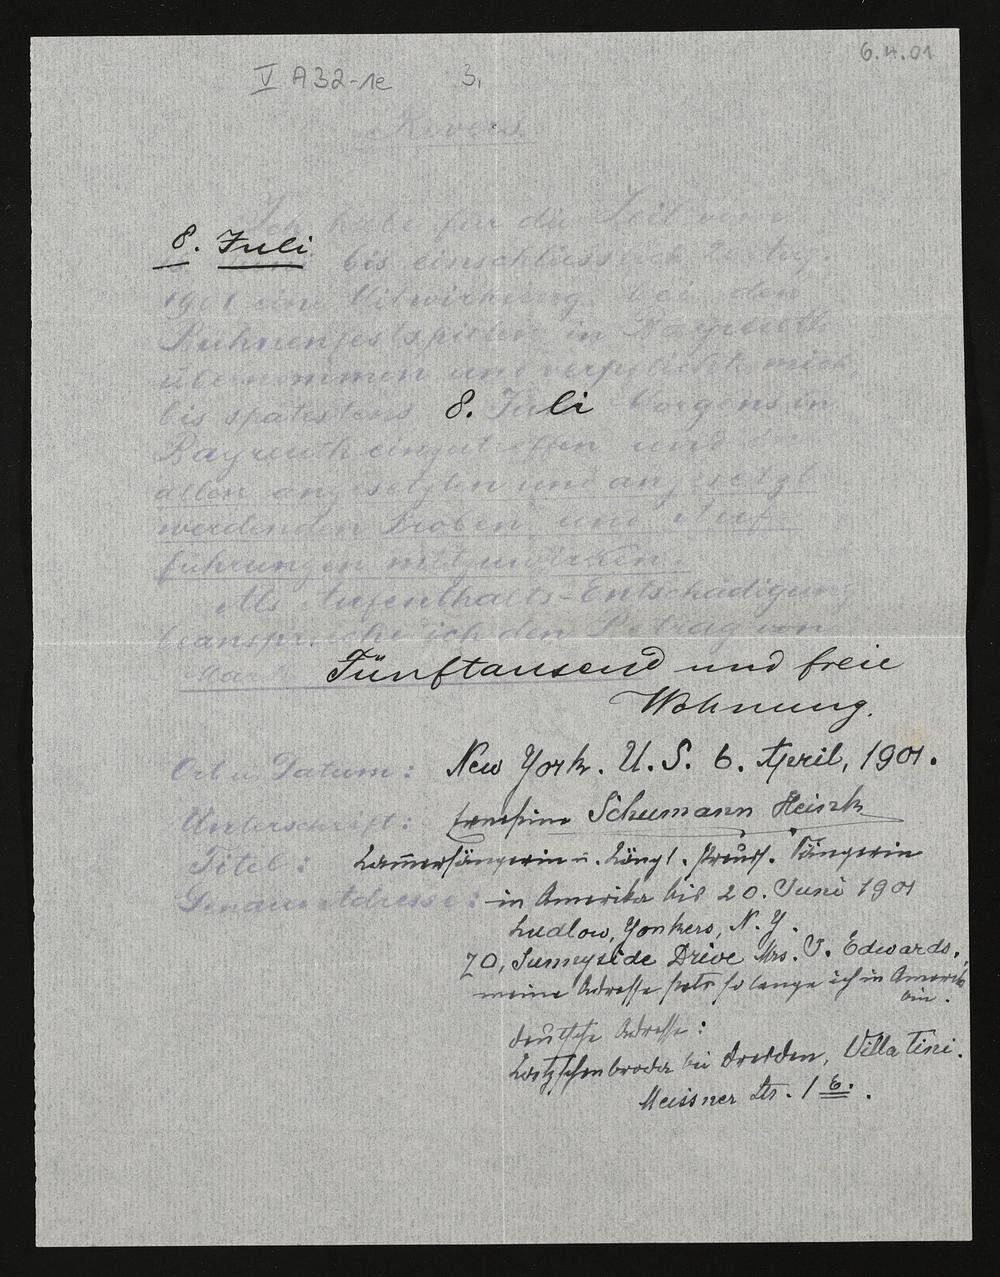 6.4.01
V A 32-1e 3,
Revers
Ich habe für die Zeit vom
8. Juli bis einschliesslich Aug.
1901 eine Mitwirkung bei den
Bühnenfestspielen in Bayreuth
übernommen und verpflichte mich,
bis spätestens 8. Juli Morgens in
Bayreuth einzutreffen und
allen angesetzten und angesetzt
werdenden Proben und Auf-
führungen mitzuwirken.
Als Aufenthalts-Entschädigung
beanspruche ich den Betrag von
Mark Fünftausend und freie
Wohnung.
Ort u. Datum: New York. U. S. 6. April, 1901.
Unterschrift: Ernestine Schumann Heink
Titel: Kammersängerin u. Königl. Preuss. Sängerin
Genaue Adresse: in Amerika bis 20. Juni 1901
Ludlow, Yonkers, N. Y.
70, Sunnyside Drive Mrs. J. Edwards.
meine Adresse stets so lange ich in Amerika
bin.
deutsche Adresse:
Kötzschenbroda bei Dresden, Villa Tini.
Meissner Str. 1 E.